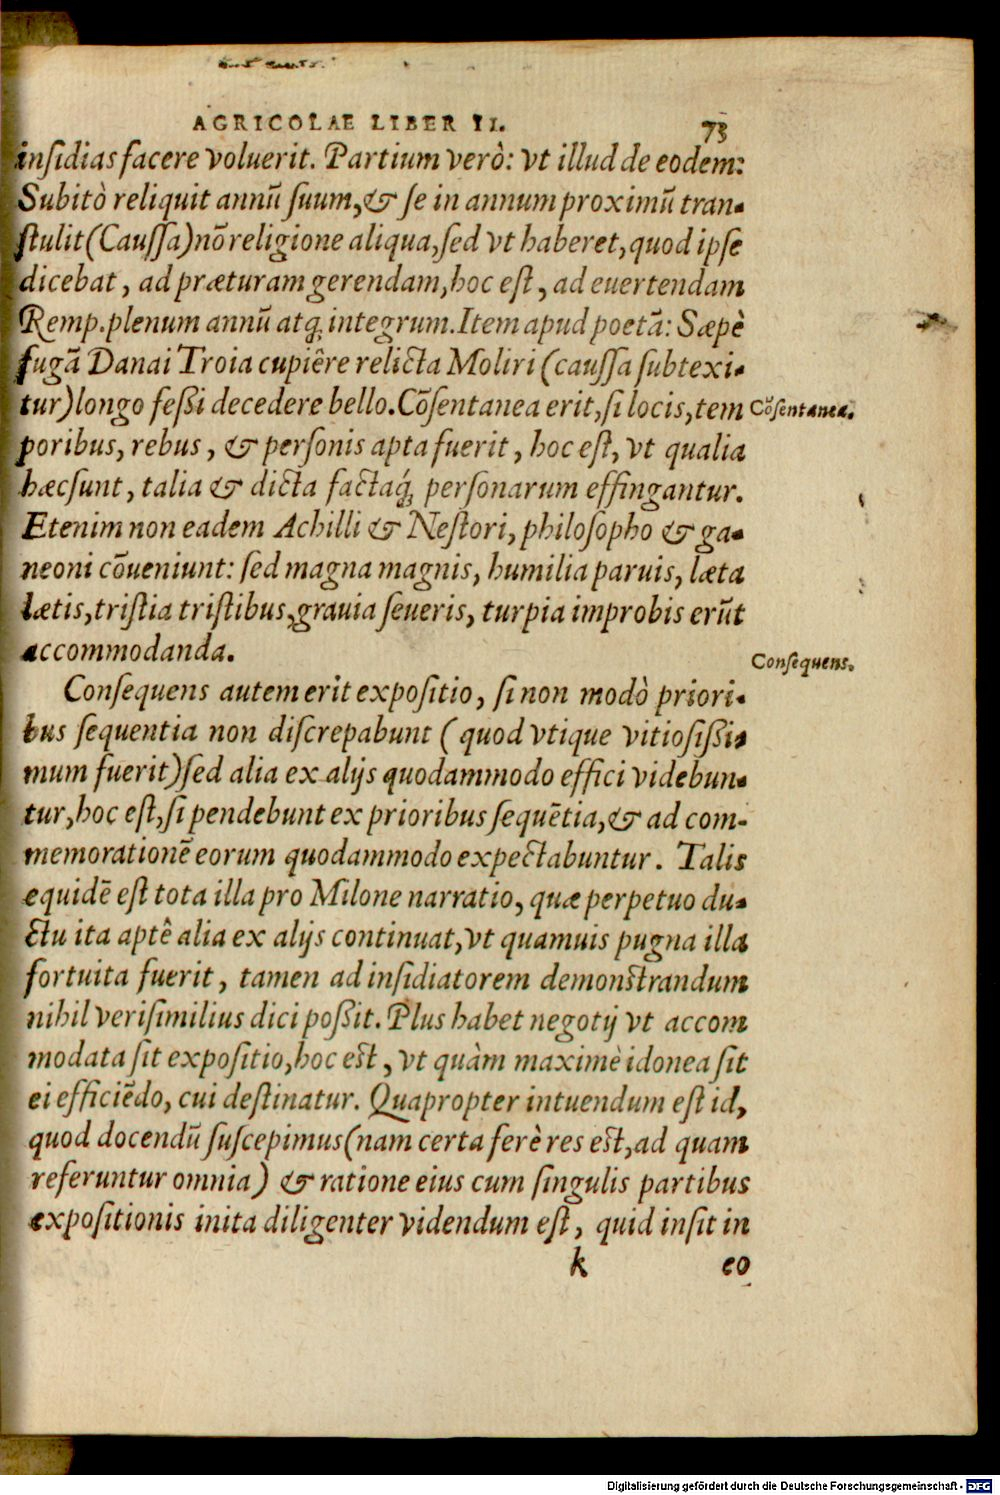 AGRICOLAE LIBER II. 73
inſidias facere voluerit. Partium verò: vt illud de eodem:
Subitò reliquit annũ ſuum, & ſe in annum proximũ tran-
ſtulit (Cauſſa) nõ religione aliqua, ſed vt haberet, quod ipſe
dicebat, ad præturam gerendam, hoc eſt, ad euertendam
Remp. plenum annũ atq; integrum. Item apud poetã: Sæpè
fugã Danai Troia cupiêre relicta Moliri (cauſſa ſubtexi-
tur) longo feßi decedere bello. Cõſentanea erit, ſi locis, tem
Cõſentanea.
poribus, rebus, & perſonis apta fuerit, hoc eſt, vt qualia
hæc ſunt, talia & dicta factaq́; perſonarum effingantur.
Etenim non eadem Achilli & Neſtori, philoſopho & ga-
neoni cõueniunt: ſed magna magnis, humilia paruis, læta
lætis, triſtia triſtibus, grauia ſeueris, turpia improbis erũt
accommodanda.
Conſequens.
Conſequens autem erit expoſitio, ſi non modò priori-
bus ſequentia non diſcrepabunt (quod vtique vitioſißi-
mum fuerit) ſed alia ex alijs quodammodo effici videbun-
tur, hoc eſt, ſi pendebunt ex prioribus ſequẽtia, & ad com-
memorationẽ eorum quodammodo expectabuntur. Talis
equidẽ eſt tota illa pro Milone narratio, quæ perpetuo du-
ctu ita aptê alia ex alijs continuat, vt quamuis pugna illa
fortuita fuerit, tamen ad inſidiatorem demonſtrandum
nihil veriſimilius dici poßit. Plus habet negotij vt accom
modata ſit expoſitio, hoc eſt, vt quàm maximè idonea ſit
ei efficiẽdo, cui deſtinatur. Quapropter intuendum eſt id,
quod docendũ ſuſcepimus (nam certa ferè res eſt, ad quam
referuntur omnia) & ratione eius cum ſingulis partibus
expoſitionis inita diligenter videndum eſt, quid inſit in
k eo
Digitalisierung gefördert durch die Deutsche Forschungsgemeinschaft - DFG